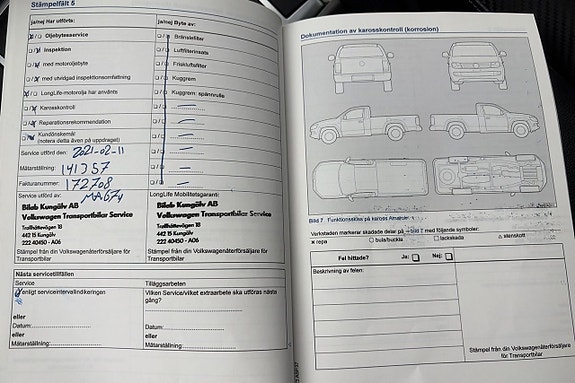 Stämpelfält 5
ja/nej Har utförts:
ja/nej Byte av:
Oljebytesservice
Bränslefilter
Inspektion
Luftfilterinsats
med motoroljebyte
Friskluftsfilter
med utvidgad inspektionsomfattning
Kuggrem
LongLife-motorolja har använts
Kuggrem: spännrulle
Karosskontroll
Reparationsrekommendation
Kundönskemål
(notera detta även på uppdraget)
Service utförd den: 2021-02-11
Mätarställning: 141357
Fakturanummer: 172708
Service utförd av:
LongLife Mobilitetsgaranti:
Bilab Kungälv AB
Volkswagen Transportbilar Service
Trollhättevägen 18
442 15 Kungälv
222 40450 - A06
Stämpel från din Volkswagenåterförsäljare för
Transportbilar
Bilab Kungälv AB
Volkswagen Transportbilar Service
Trollhättevägen 18
442 15 Kungälv
222 40450 - A06
Stämpel från din Volkswagenåterförsäljare för
Transportbilar
Nästa servicetillfällen
Service
Tilläggsarbeten
enligt serviceintervallindikeringen
Vilken Service/vilket extraarbete ska utföras nästa
gång?
eller
Datum:
eller
Mätarställning:
Datum:
eller
Mätarställning:
Dokumentation av karosskontroll (korrosion)
Bild 7 Funktionsskiss på kaross Amarok
Verkstaden markerar skadade delar på ⇒ bild 7 med följande symboler:
× repa
○ bula/buckla
□ lackskada
△ stenskott
Fel hittade?
Ja:
Nej:
Beskrivning av felen:
Stämpel från din Volkswagenåterförsäljare
för Transportbilar